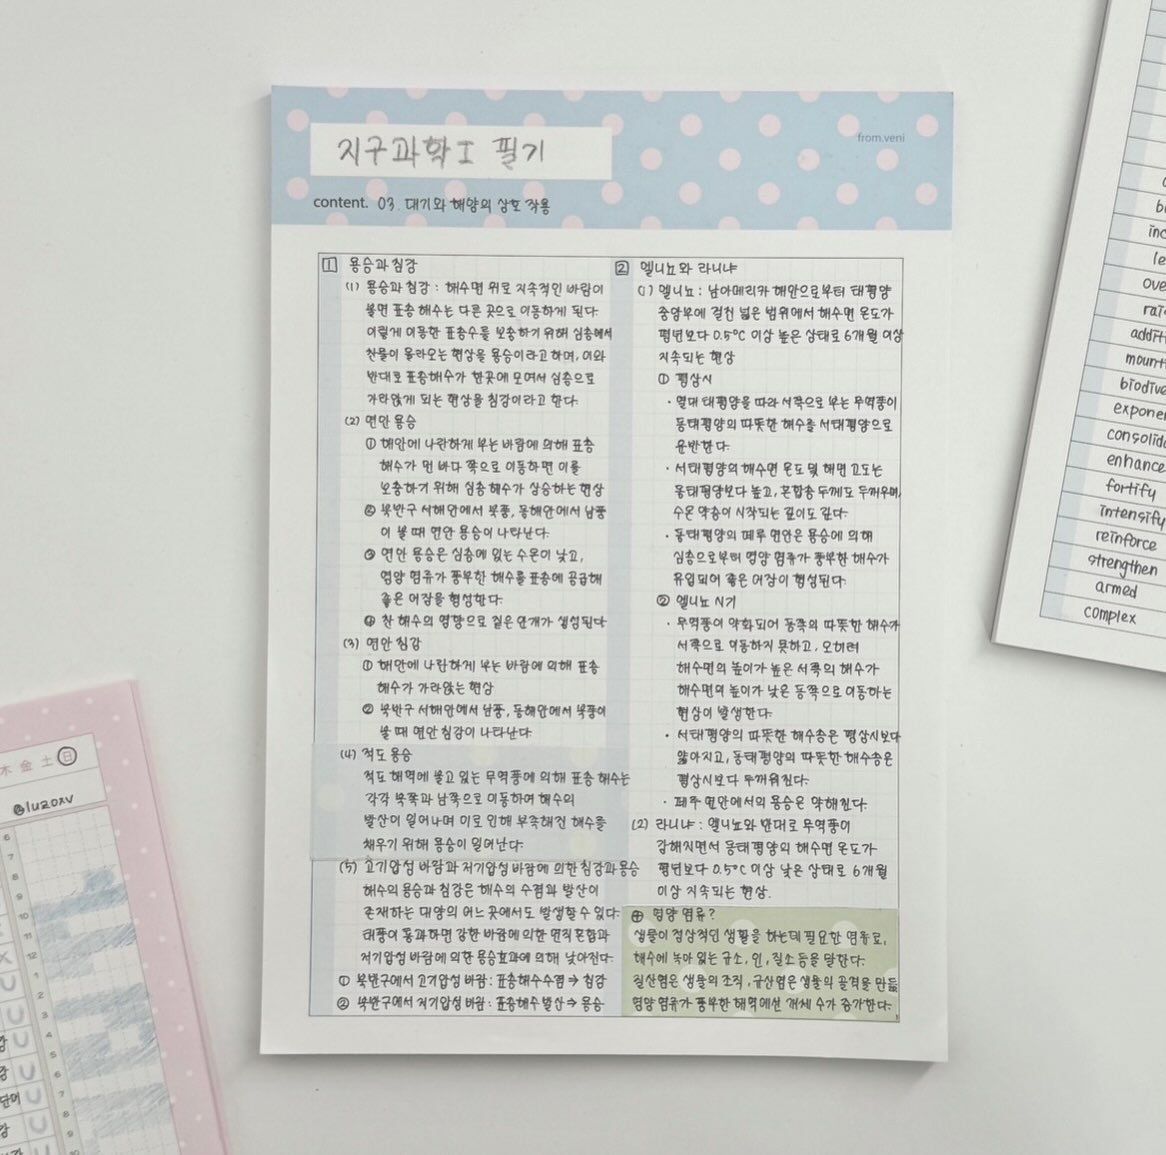 지구과학I 필기
from.veni
content. 03. 대기와 해양의 상호 작용
1 용승과 침강
(1) 용승과 침강 : 해수면 위로 지속적인 바람이
불면 표층 해수는 다른 곳으로 이동하게 된다.
이렇게 이동한 표층수를 보충하기 위해 심층에서
찬물이 올라오는 현상을 용승이라고 하며, 이와
반대로 표층해수가 한곳에 모여서 심층으로
가라앉게 되는 현상을 침강이라고 한다.
(2) 연안 용승
① 해안에 나란하게 부는 바람에 의해 표층
해수가 먼 바다 쪽으로 이동하면 이를
보충하기 위해 심층 해수가 상승하는 현상
② 북반구 서해안에서 북풍, 동해안에서 남풍
이 불 때 연안 용승이 나타난다.
③ 연안 용승은 심층에 있는 수온이 낮고,
영양 염류가 풍부한 해수를 표층에 공급해
좋은 어장을 형성한다.
④ 찬 해수의 영향으로 짙은 안개가 생성된다
(3) 연안 침강
① 해안에 나란하게 부는 바람에 의해 표층
해수가 가라앉는 현상
② 북반구 서해안에서 남풍, 동해안에서 북풍이
불 때 연안 침강이 나타난다
(4) 적도 용승
적도 해역에 불고 있는 무역풍에 의해 표층 해수는
각각 북쪽과 남쪽으로 이동하여 해수의
발산이 일어나며 이로 인해 부족해진 해수를
채우기 위해 용승이 일어난다.
(5) 고기압성 바람과 저기압성 바람에 의한 침강과 용승
해수의 용승과 침강은 해수의 수렴과 발산이
존재하는 대양의 어느 곳에서도 발생할 수 있다.
태풍이 통과하면 강한 바람에 의한 연직 혼합과
저기압성 바람에 의한 용승효과에 의해 낮아진다.
① 북반구에서 고기압성 바람 : 표층해수수렴 → 침강
② 북반구에서 저기압성 바람 : 표층해수발산 → 용승
2 엘니뇨와 라니냐
(1) 엘니뇨 : 남아메리카 해안으로부터 태평양
중앙부에 걸친 넓은 범위에서 해수면 온도가
평년보다 0.5°C 이상 높은 상태로 6개월 이상
지속되는 현상
① 평상시
· 열대 태평양을 따라 서쪽으로 부는 무역풍이
동태평양의 따뜻한 해수를 서태평양으로
운반한다.
· 서태평양의 해수면 온도 및 해면 고도는
동태평양보다 높고, 혼합층 두께도 두꺼우며,
수온 약층이 시작되는 깊이도 깊다.
· 동태평양의 페루 연안은 용승에 의해
심층으로부터 영양 염류가 풍부한 해수가
유입되어 좋은 어장이 형성된다.
② 엘니뇨 시기
· 무역풍이 약화되어 동쪽의 따뜻한 해수가
서쪽으로 이동하지 못하고, 오히려
해수면의 높이가 높은 서쪽의 해수가
해수면의 높이가 낮은 동쪽으로 이동하는
현상이 발생한다.
· 서태평양의 따뜻한 해수층은 평상시보다
얇아지고, 동태평양의 따뜻한 해수층은
평상시보다 두꺼워진다.
· 페루 연안에서의 용승은 약해진다.
(2) 라니냐 : 엘니뇨와 반대로 무역풍이
강해지면서 동태평양의 해수면 온도가
평년보다 0.5°C 이상 낮은 상태로 6개월
이상 지속되는 현상.
⊕ 영양 염류?
생물이 정상적인 생활을 하는데 필요한 염류로,
해수에 녹아 있는 규소, 인, 질소 등을 말한다.
질산염은 생물의 조직, 규산염은 생물의 골격을 만듦
영양 염류가 풍부한 해역에선 개체 수가 증가한다.
overc
mount
biodive
expone
consolid
enhance
fortify
intensify
reinforce
strengthen
armed
complex
木 金 土 日
@luzoxv